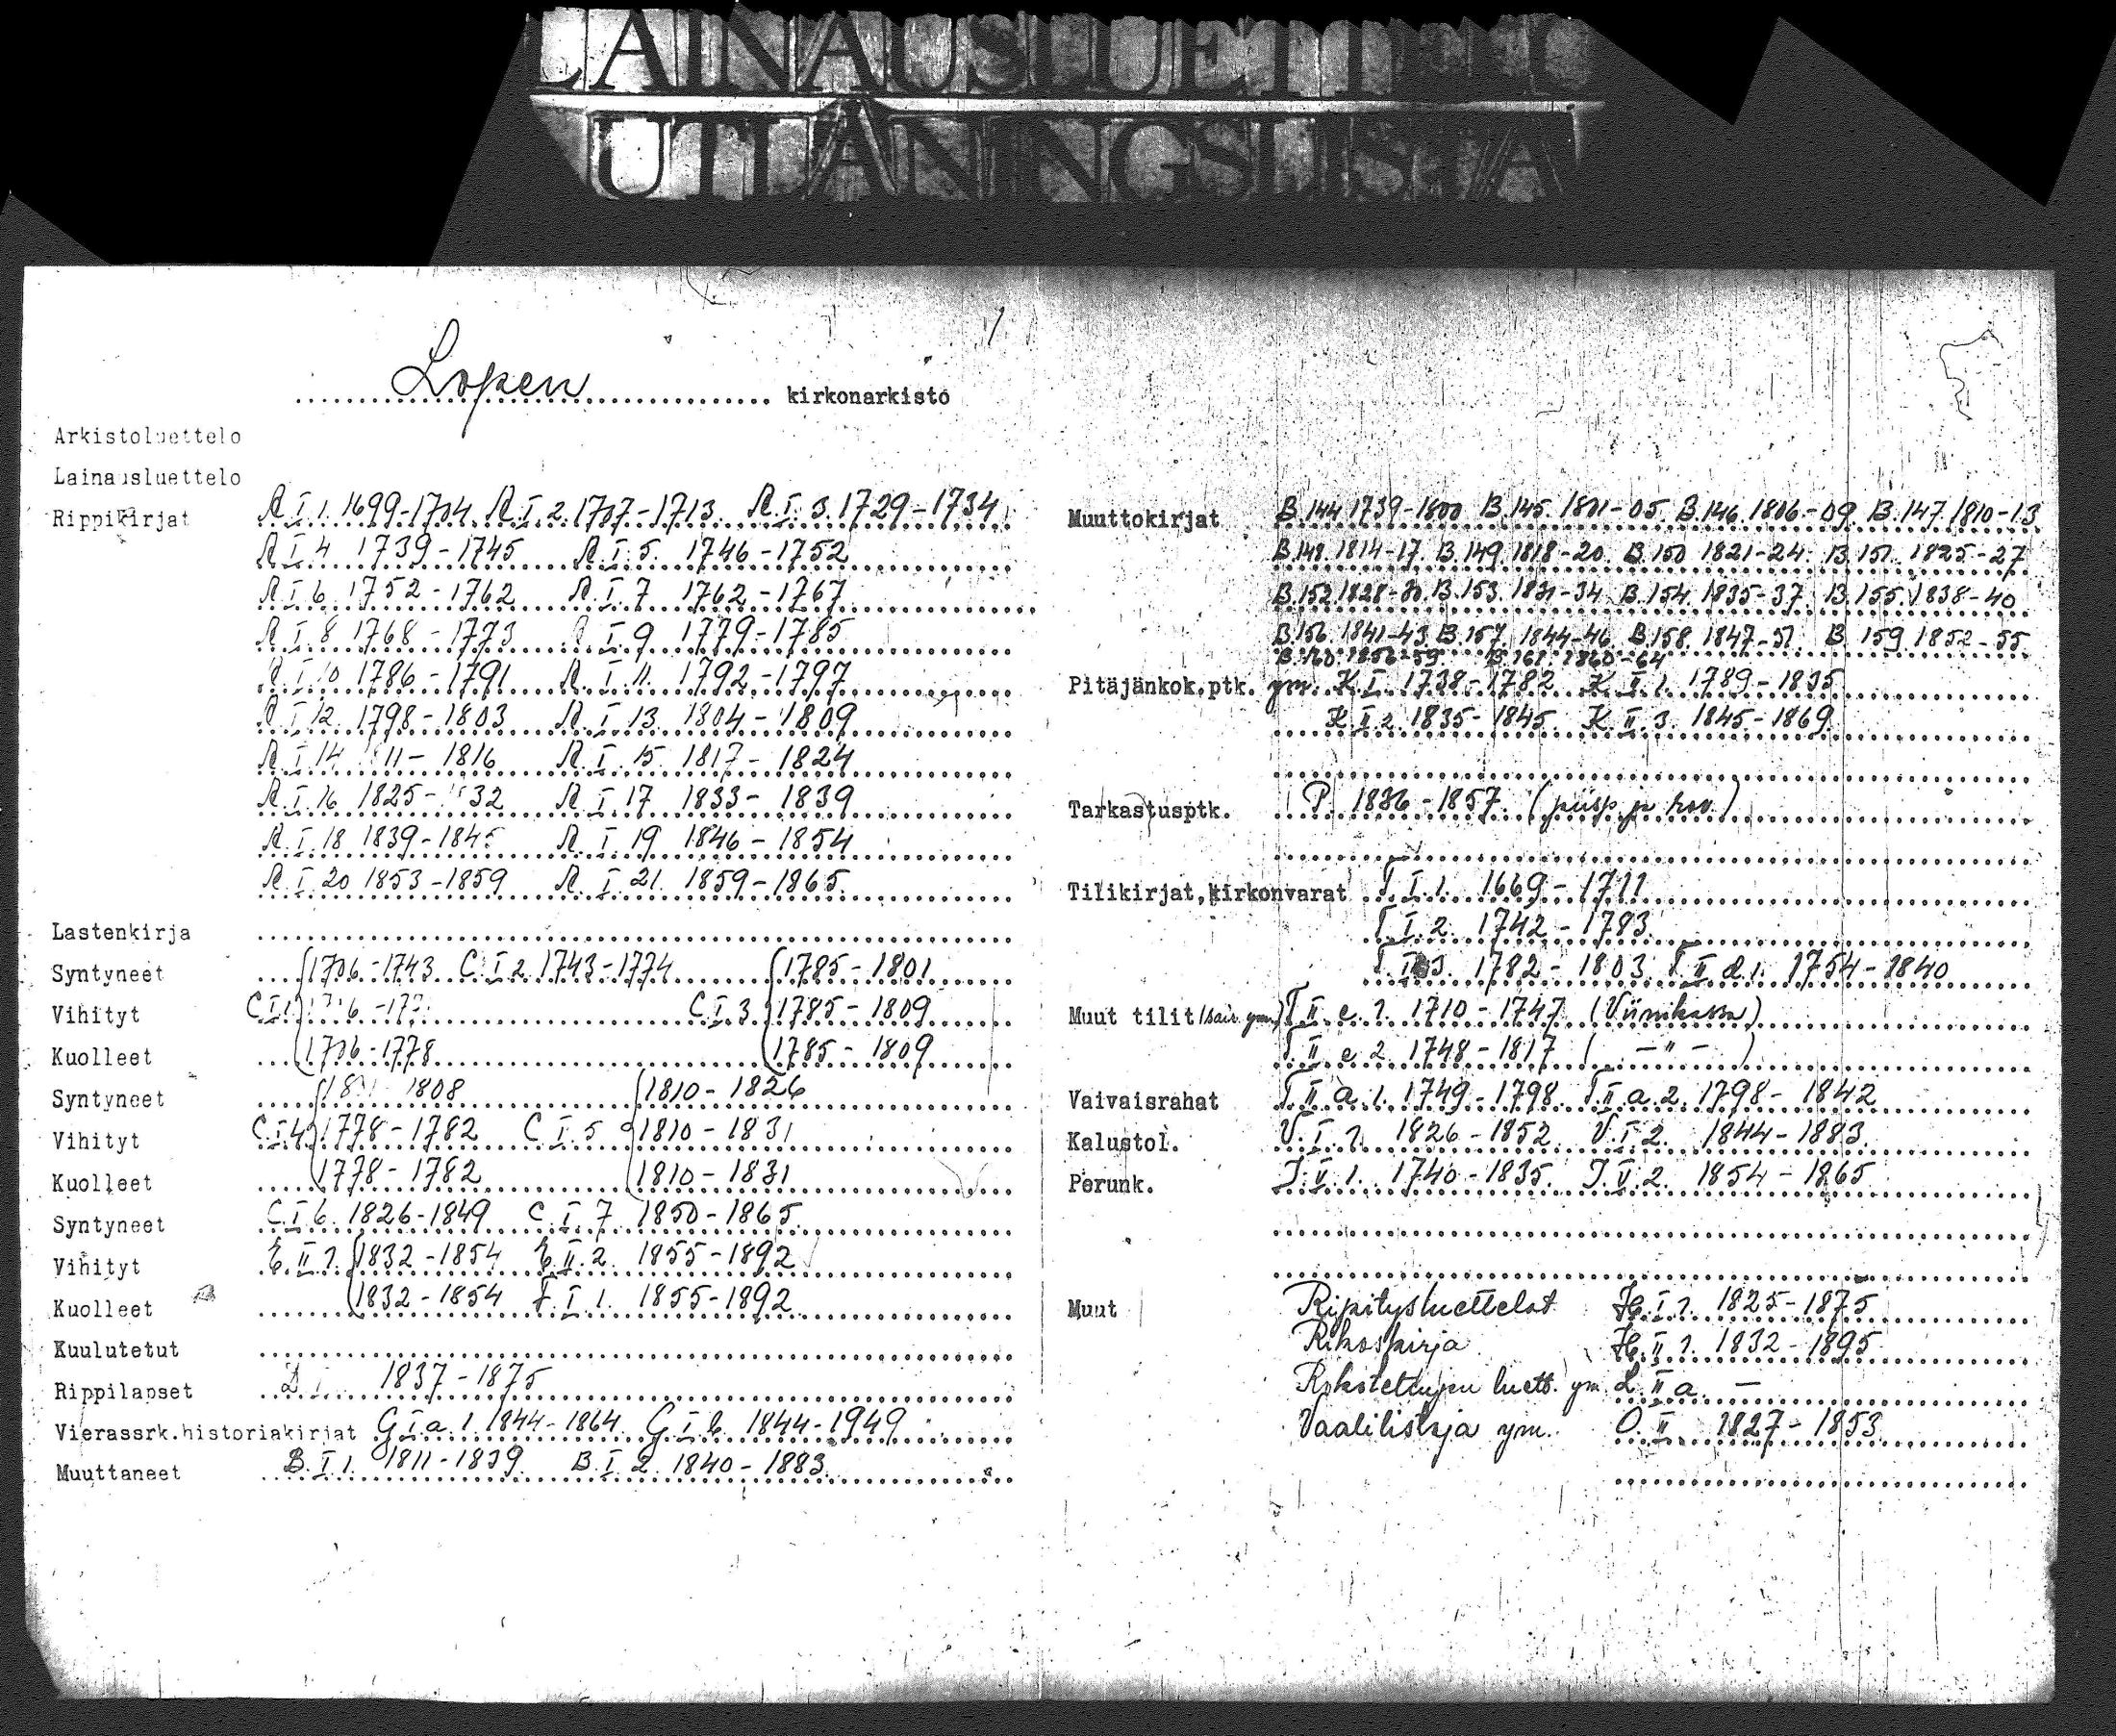 LAINAUSLUETTELO
UTLÅNINGSLISTA
Lopen kirkonarkisto
Arkistoluettelo
Lainausluettelo
Rippikirjat R.I.1. 1699-1704 R.I.2. 1707-1713 R.I.3. 1729-1734
R.I.4 1739-1745 R.I.5. 1746-1752
R.I.6 1752-1762 R.I.7 1762-1767
R.I.8 1768-1773 R.I.9 1779-1785
R.I.10 1786-1791 R.I.11. 1792-1797
R.I.12. 1798-1803 R.I.13. 1804-1809
R.I.14 11-1816 R.I.15. 1817-1824
R.I.16 1825-32 R.I.17 1833-1839
R.I.18 1839-184 R.I.19 1846-1854
R.I.20 1853-1859 R.I.21. 1859-1865
Lastenkirja
Syntyneet 1706-1743 C.I.2. 1743-1774 1785-1801
Vihityt C.I.1. C.I.3. 1785-1809
Kuolleet 1706-1778 1785-1809
Syntyneet 1808 1810-1826
Vihityt C.I.4. 1778-1782 C.I.5 1810-1831
Kuolleet 1778-1782 1810-1831
Syntyneet C.I.6. 1826-1849 C.I.7 1850-1865
Vihityt E.II.1. 1832-1854 E.II.2. 1855-1892
Kuolleet 1832-1854 F.I.1. 1855-1892
Kuulutetut
Rippilapset D. 1837-1875
Vierassrk.historiakirjat G.I.a.1. 1844-1864 G.I.b. 1844-1949
Muuttaneet B.I.1. 1811-1839 B.I.2. 1840-1883
Muuttokirjat B.144 1739-1800 B.145. 1801-05 B.146. 1806-09 B.147. 1810-13
B.148. 1814-17. B.149. 1818-20. B.150 1821-24 B.151. 1825-27
B.152 1828-30 B.153. 1831-34 B.154. 1835-37 B.155. 1838-40
B.156. 1841-43 B.157. 1844-46 B.158. 1847-51. B.159. 1852-55
B.160. 1856-59 B.161. 1860-64
Pitäjänkok.ptk. ym. K.I. 1738-1782 K.II.1. 1789-1835
K.II.2. 1835-1845 K.II.3. 1845-1869
Tarkastusptk. P. 1836-1857. (piisp. ja rov.)
Tilikirjat,kirkonvarat T.I.1. 1669-1711
T.I.2. 1742-1783
T.I.3. 1782-1803 T.II.d.1. 1754-1840
Muut tilit (sair. ym.) T.II.c.1. 1710-1747 (Viinikassa)
T.II.c.2. 1748-1817 ( -"- )
Vaivaisrahat T.II.a.1. 1749-1798 T.II.a.2. 1798-1842
Kalustol. V.I.1. 1826-1852 V.I.2. 1844-1883
Perunk. J.V.1. 1740-1835. J.V.2. 1854-1865
Muut Ripitysluettelot H.I.1. 1825-1875
Rikoskirja H.II.1. 1832-1895
Rokotettujen luett. ym. L.II.a. -
Vaalilistoja ym. O.II. 1827-1853